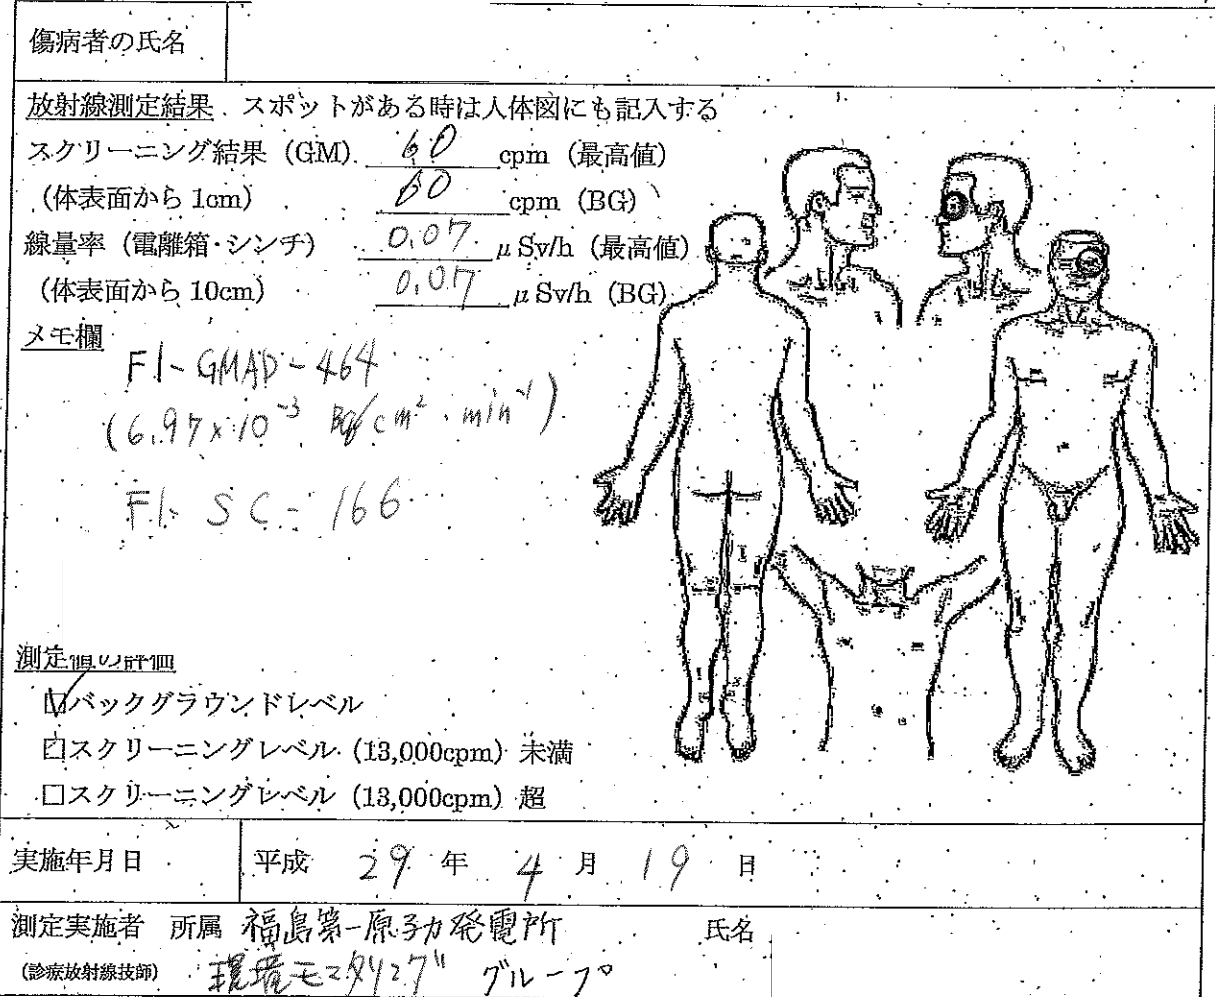 傷病者の氏名
放射線測定結果 スポットがある時は人体図にも記入する
スクリーニング結果 (GM) 60 cpm (最高値)
(体表面から 1cm) 60 cpm (BG)
線量率 (電離箱・シンチ) 0.07 μSv/h (最高値)
(体表面から 10cm) 0.07 μSv/h (BG)
メモ欄
F1-GMAD-464
(6.97×10⁻³ Bq/cm²・min⁻¹)
F1-SC-166
測定値の評価
☑バックグラウンドレベル
□スクリーニングレベル (13,000cpm) 未満
□スクリーニングレベル (13,000cpm) 超
実施年月日 平成 29 年 4 月 19 日
測定実施者 所属 福島第一原子力発電所 氏名
(診療放射線技師) 環境モニタリング グループ